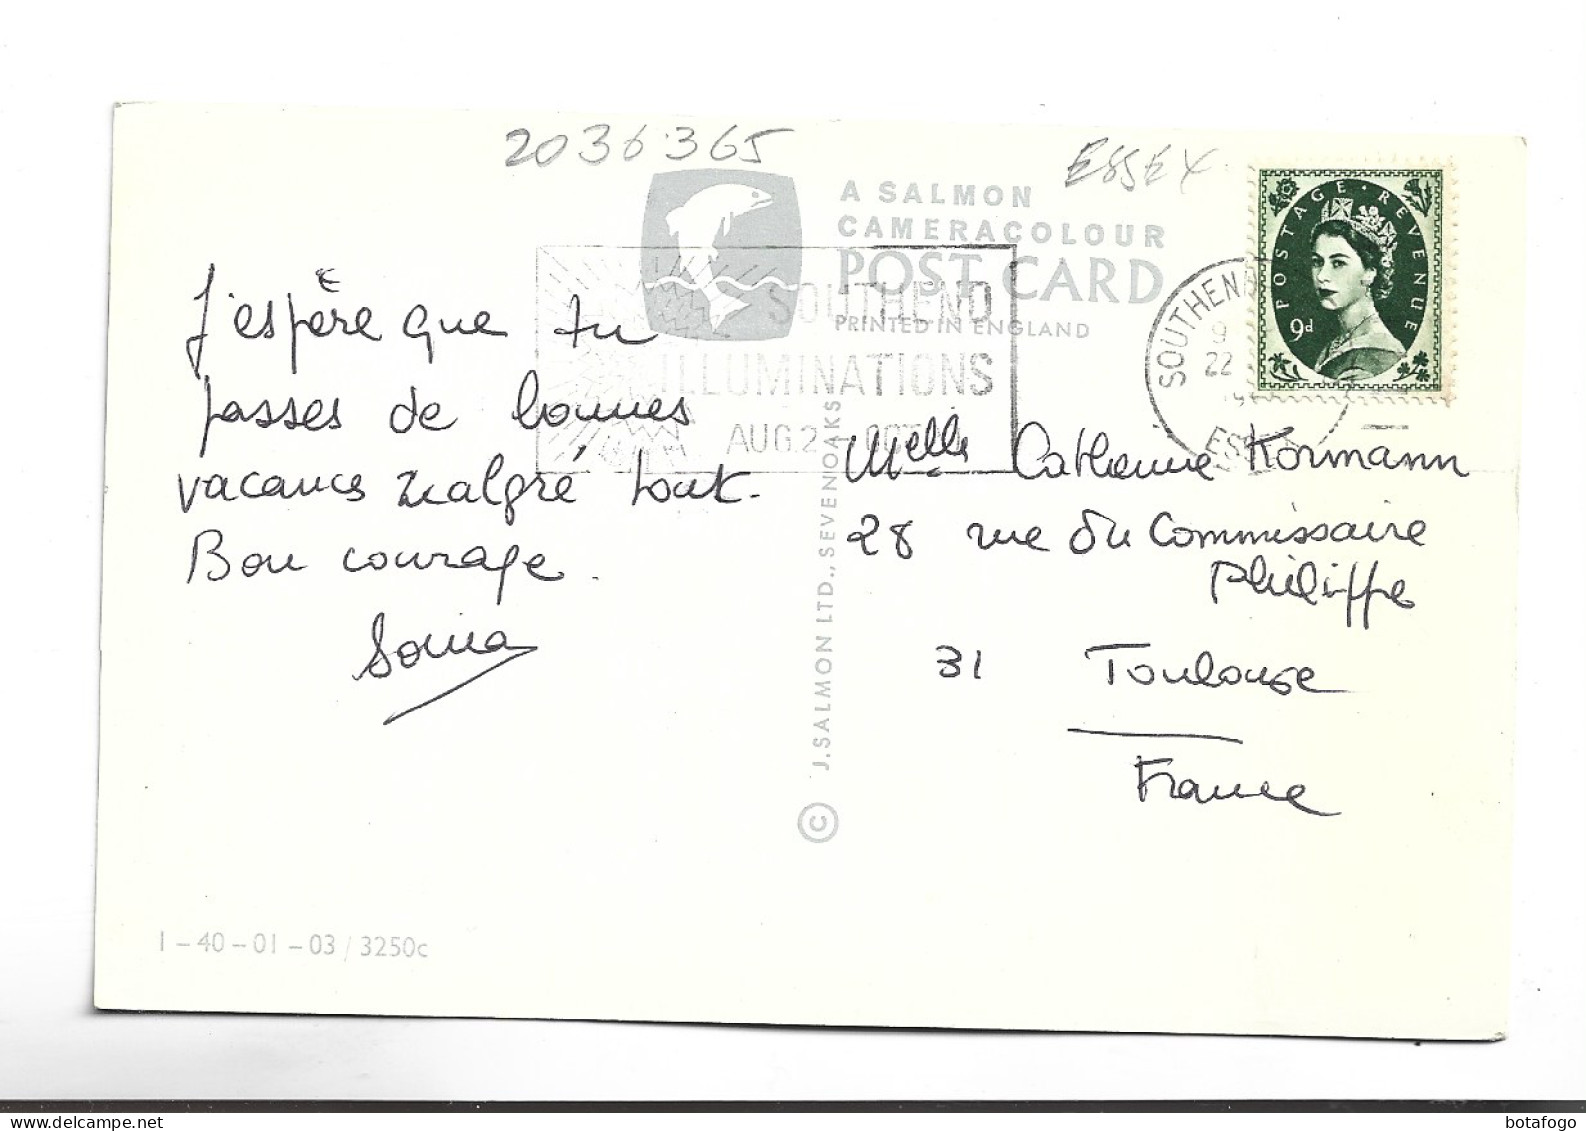 2036365
ESSEX
A SALMON
CAMERACOLOUR
POST CARD
PRINTED IN ENGLAND
SOUTHEND
ILLUMINATIONS
AUG 2
SOUTHEN
9
22
POSTAGE · REVENUE
9d
J'espère que tu
passes de bonnes
vacances malgré tout.
Bon courage.
Sonia
Melle Catherine Kormann
28 rue du Commissaire
Philippe
31 Toulouse
France
© J. SALMON LTD., SEVENOAKS
1 – 40 – 01 – 03 / 3250c
botafogo